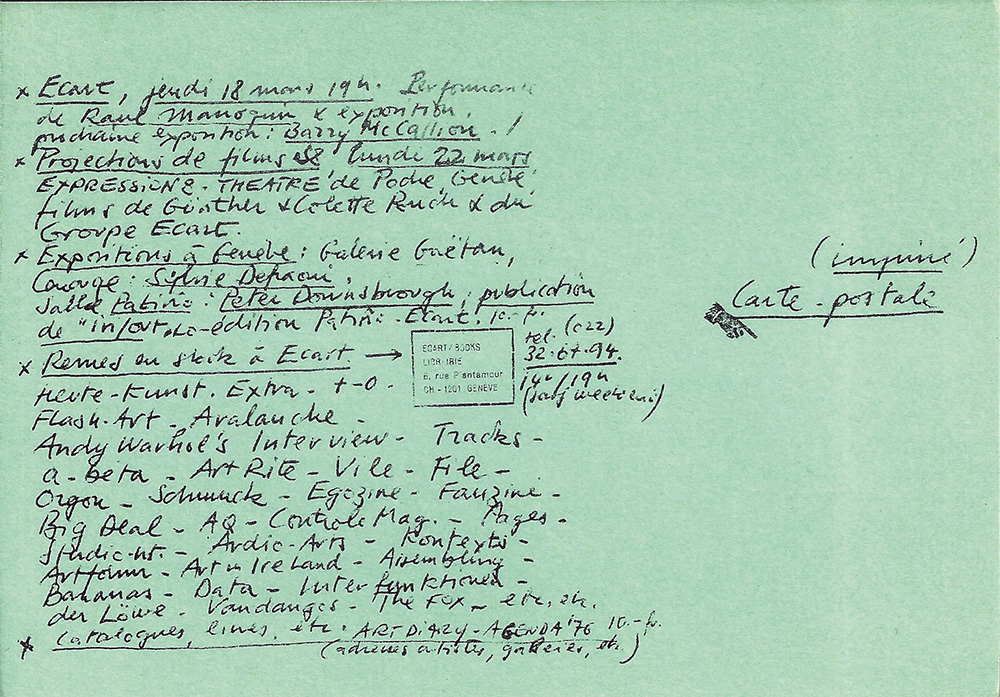 x Ecart, jeudi 18 mars 19h. Performance
de Raul Marroquin & exposition.
prochaine exposition: Barry McCallion. /
x Projections de films S8 lundi 22 mars
EXPRESSION 2 - THEATRE de Poche, Genève,
films de Günther & Colette Ruch & du
Groupe Ecart.
x Expositions à Genève: Galerie Gaëtan,
Carouge: Silvie Defraoui,
Salle Patiño: Peter Downsbrough, publication
de "In/out, co-édition Patiño-Ecart. 10.- fr.
x Revues en stock à Ecart →
ECART/BOOKS
LIBRAIRIE
6, rue Plantamour
CH - 1201 GENEVE
tel. (022)
32.67.94.
14h/19h
(sauf weekend)
Heute-Kunst. Extra - +-0 -
Flash-Art - Avalanche -
Andy Warhol's Interview - Tracks -
a-beta - Art Rite - Vile - File -
Orgon - Schmuck - Egozine - Fanzine -
Big Deal - AQ - Controle Mag. - Pages -
Studio-Int. - Ardic-Arts - Kontexts -
Artforum - Art in Ireland - Assembling -
Bananas - Data - Interfunktionen -
der Löwe - Vandangos - The Fox - etc, etc.
x Catalogues, livres, etc. ART DIARY - AGENDA '76 10.- fr.
(adresses artistes, galeries, etc.)
(imprimé)
Carte-postale